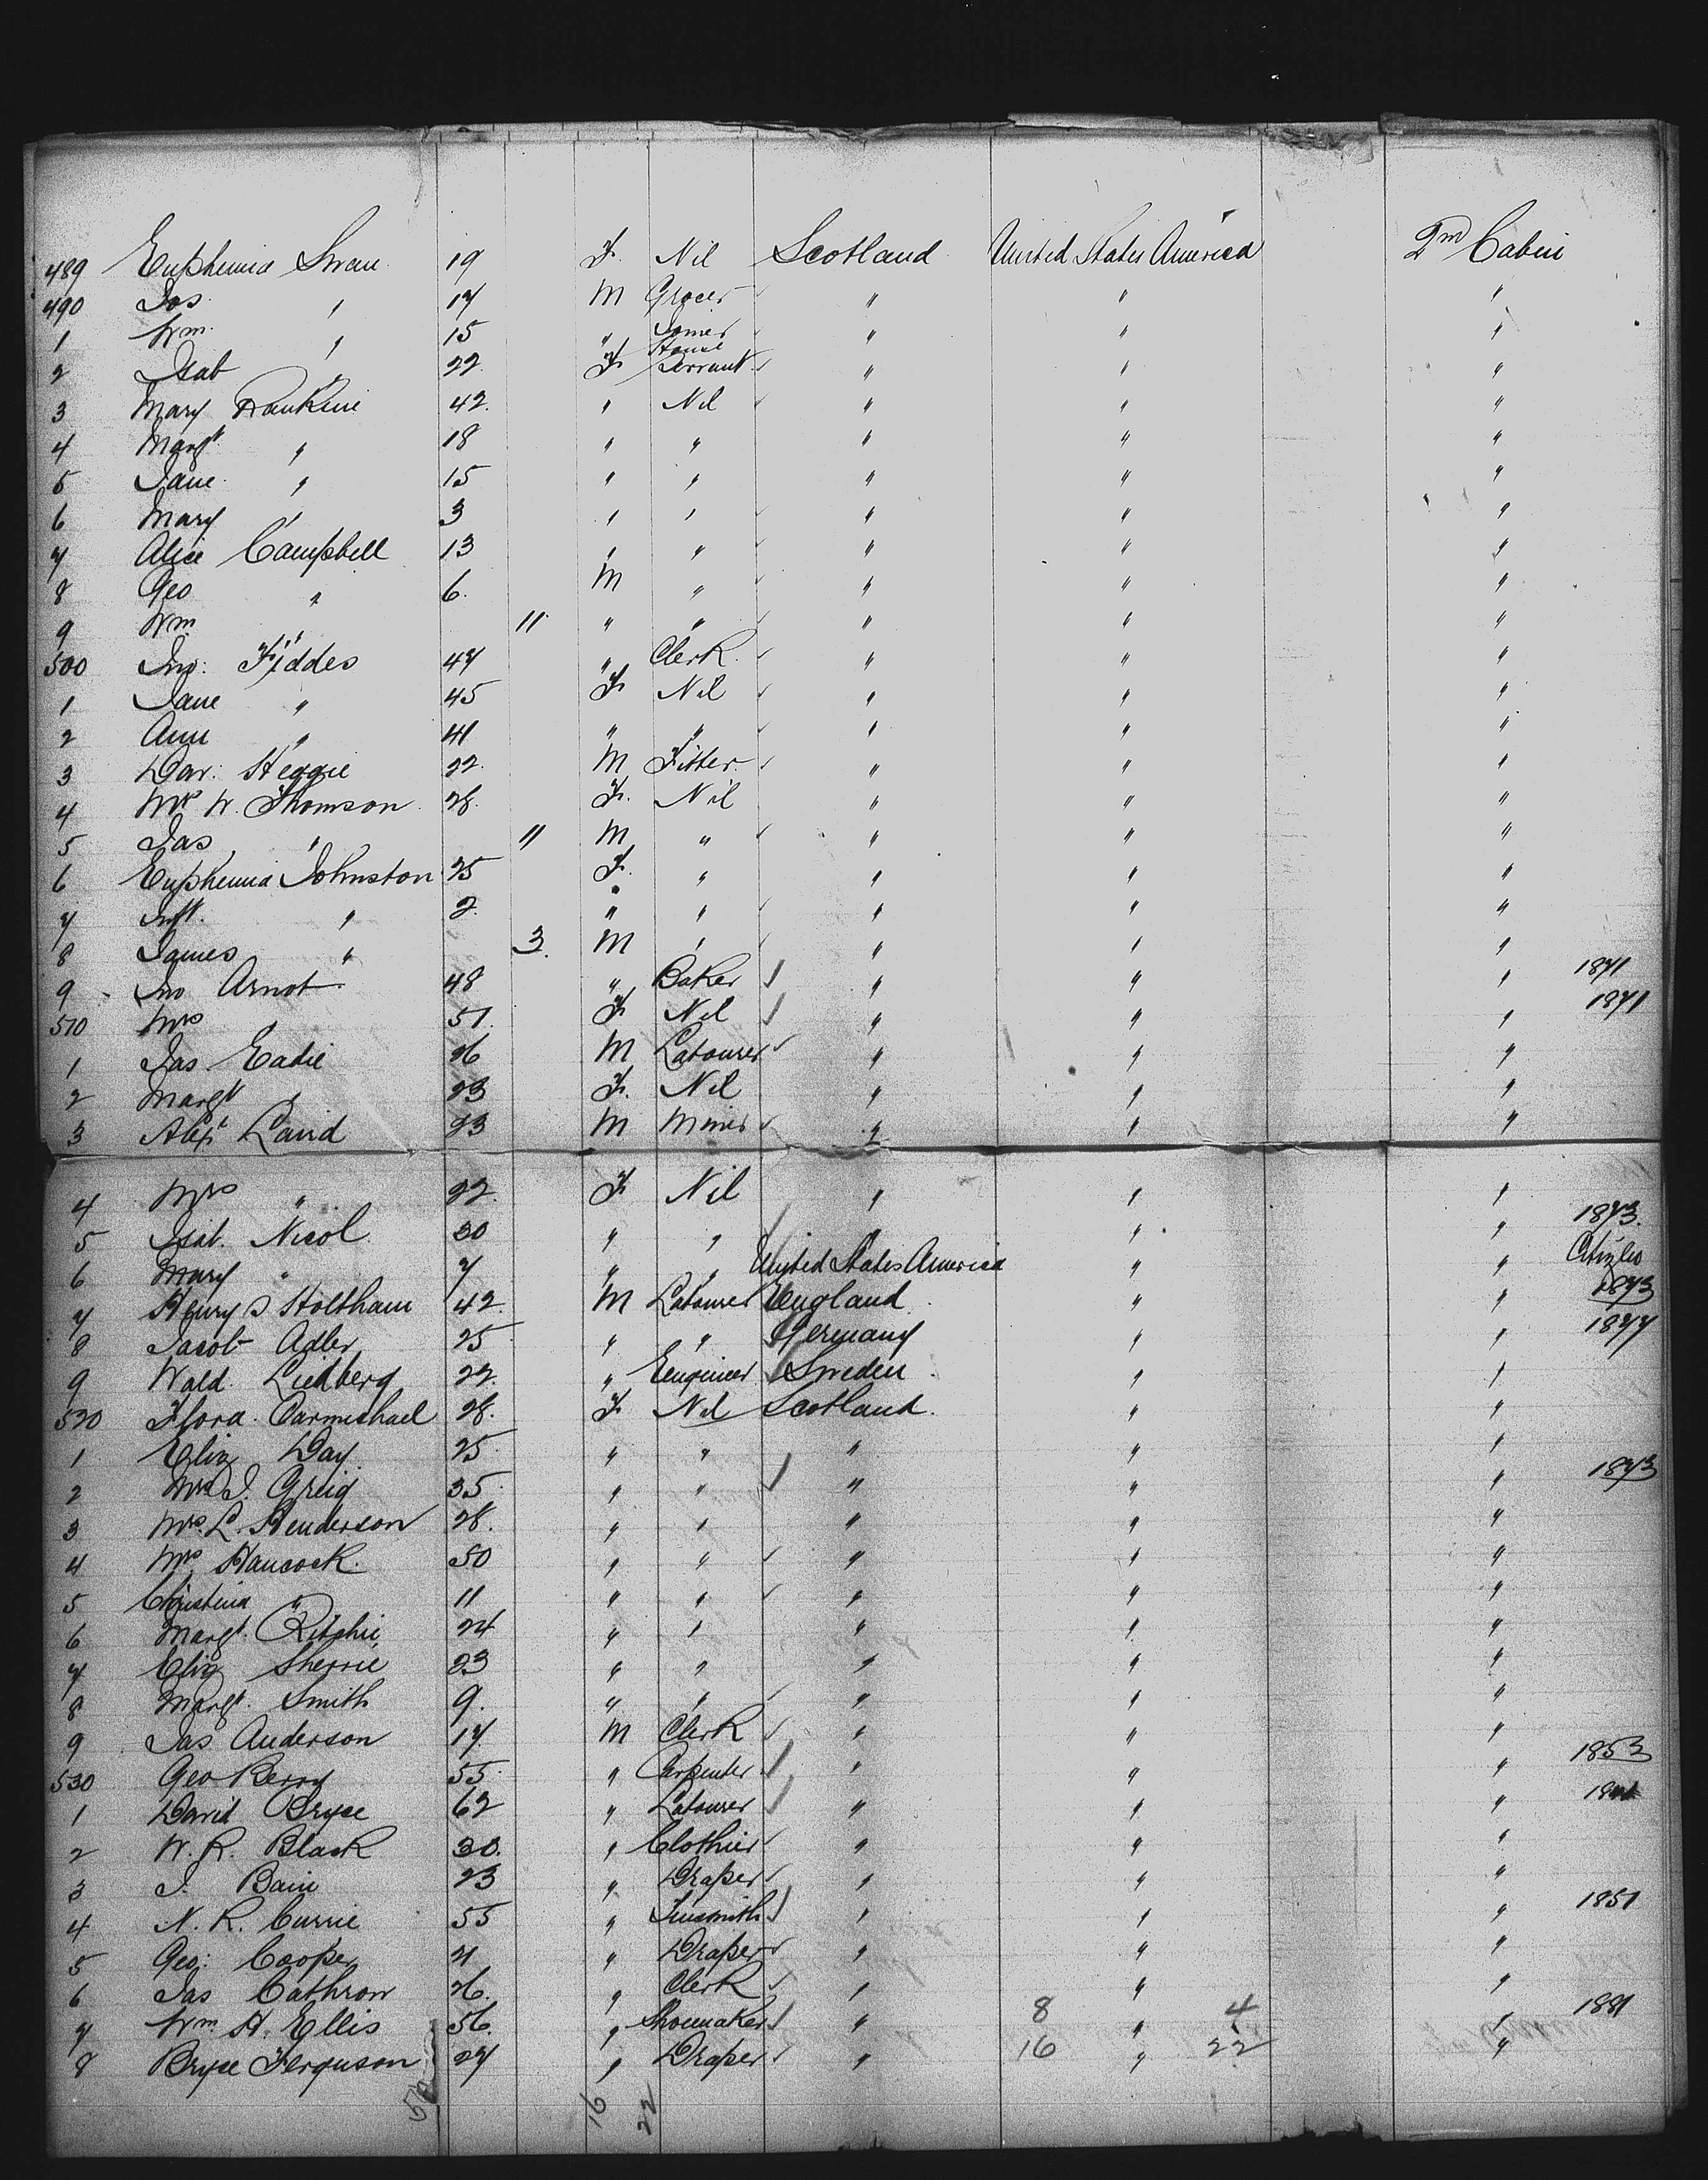 489 Euphemia Swan 19 F. Nil Scotland United States America 2nd Cabin
490 Jas. " 17 M Grocer " " "
1 Wm. " 15 " Joiner " " "
2 Isab " 22. F House Servant " " "
3 Mary Rankine 42. " Nil " " "
4 Margt. " 18 " " " " "
5 Jane. " 15 " " " " "
6 Mary " 3 " " " " "
7 Alice Campbell 13 " " " " "
8 Geo " 6. M " " " "
9 Wm. " 11. " " " " "
500 Jno: Fiddes 47 " Clerk. " " "
1 Jane " 45 F Nil " " "
2 Ann " 41 " " " " "
3 Dav: Heggie 22. M Fitter. " " "
4 Mrs W. Thomson 28. F. Nil " " "
5 Jas " 11 M " " " "
6 Euphemia Johnston 25 F. " " " "
7 Inft. " 2. " " " " "
8 James " 3. M " " " "
9 Jno Arnot 48 " Baker " " " 1871
510 Mrs 51. F Nil " " " 1871
1 Jas. Eadie 26 M Labourer " " "
2 Margt " 23 F. Nil " " "
3 Alexr Laird 23 M Miner " " "
4 Mrs " 22. F Nil " " "
5 Isab. Nicol 30 " " " " " 1873.
6 Mary " 7 " " United States America " " Citizen
7 Henry J Holtham 42. M Labourer England " " 1873
8 Jacob Adler 25 " " Germany " " 1877
9 Wald. Liedberg 22. " Engineer Sweden " "
520 Flora. Carmichael 28. F Nil Scotland. " "
1 Eliz Day. 25 " " " " "
2 Mrs J. Greig 35 " " " " " 1873
3 Mrs. L. Henderson 28. " " " " "
4 Mrs Hancock. 50 " " " " "
5 Christina " 11 " " " " "
6 Margt. Ritchie 24 " " " " "
7 Eliz Sherrie 23 " " " " "
8 Margt. Smith 9. " " " " "
9 Jas Anderson 17. M Clerk " " "
530 Geo Berry 55. " Carpenter " " " 1853
1 David Bryce 62 " Labourer " " "
2 W. R. Black 30. " Clothier " " "
3 J. Bain 23 " Draper " " "
4 N. R. Currie 55 " Tinsmith " " " 1851
5 Geo: Cooper 21 " Draper " " "
6 Jas Cathron 26. " Clerk " " "
7 Wm. H. Ellis 56. " Shoemaker " 8 " 4 " 1881
8 Bryce Ferguson 27 " Draper " 16 " 22 "
50 16 22